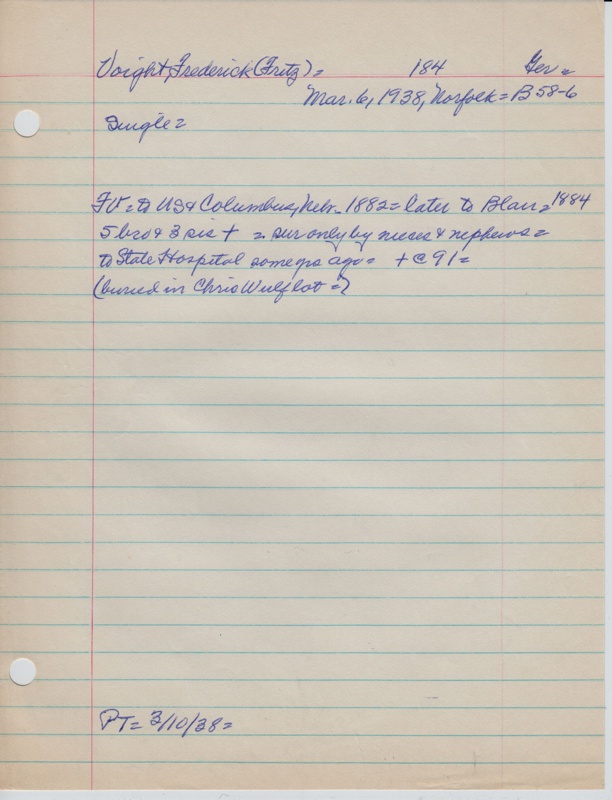 Voight, Frederick (Fritz) = 184 Ger =
Mar. 6, 1938, Norfolk = B 58-6
Single =
FV = to US & Columbus, Nebr. 1882 = later to Blair = 1884
5 bro & 3 sis + = sur only by nieces & nephews =
to State Hospital some yrs ago = + @ 91 =
(buried in Chris Wulf lot = )
PT = 3/10/38 =